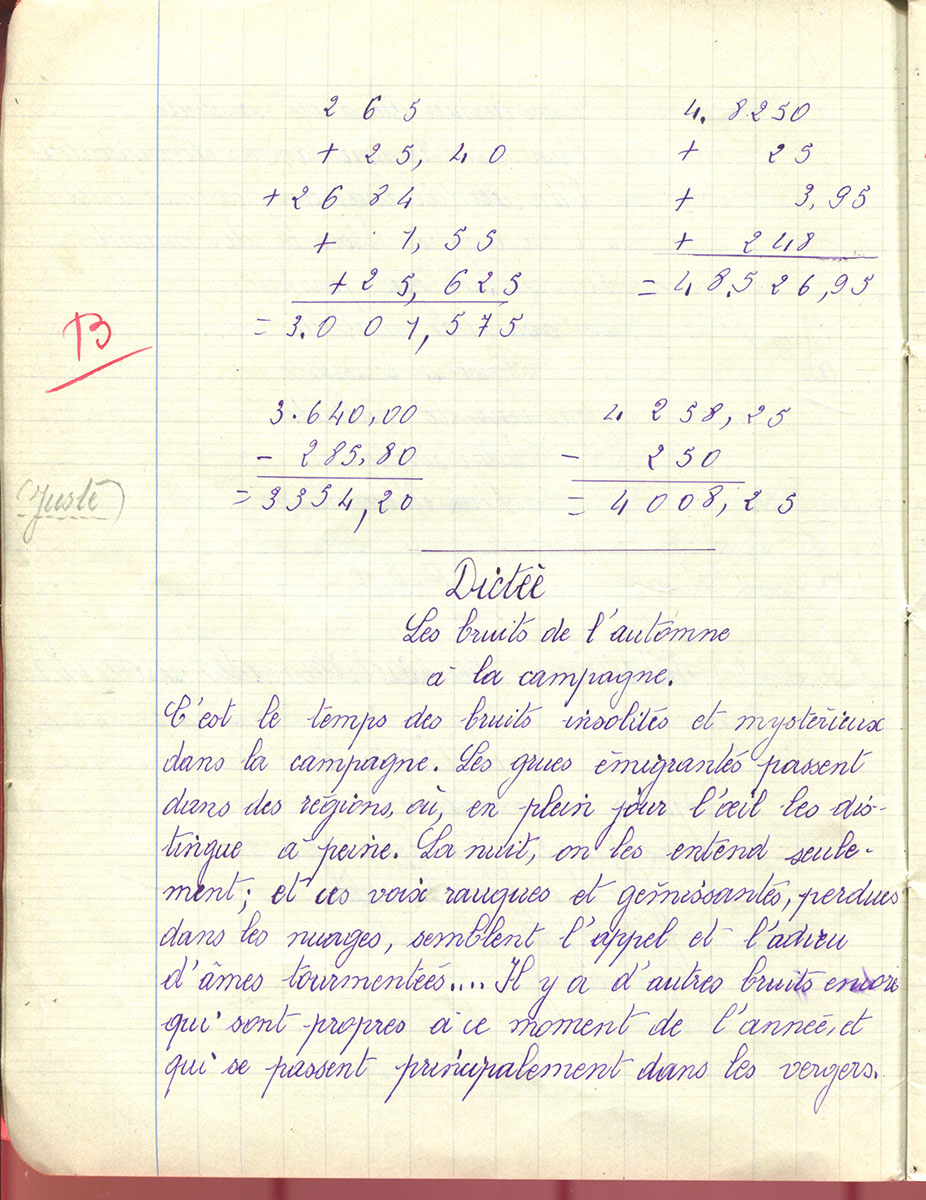 265
+ 25,40
+ 2684
+ 1,55
+ 25,625
= 3.001,575
4.8250
+ 25
+ 3,95
+ 248
= 48.526,95
B
3.640,00
- 285,80
= 3354,20
4258,25
- 250
= 4008,25
(Juste)
Dictée
Les bruits de l'automne
à la campagne.
C'est le temps des bruits insolites et mystérieux
dans la campagne. Les grues émigrantes passent
dans des régions, où, en plein jour l'œil les dis-
tingue à peine. La nuit, on les entend seule-
ment; et ces voix rauques et gémissantes, perdues
dans les nuages, semblent l'appel et l'adieu
d'âmes tourmentées.... Il y a d'autres bruits encore
qui sont propres à ce moment de l'année, et
qui se passent principalement dans les vergers.